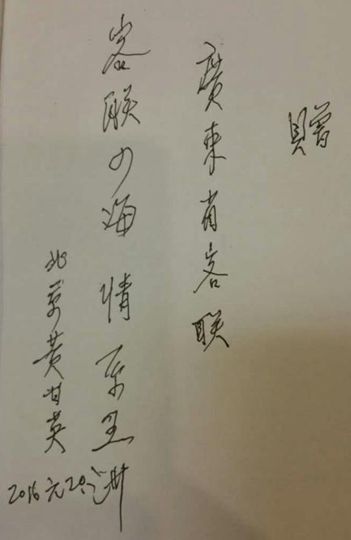 贈
廣東省客联
客联四海情系五洲
北京黄甘英
2016元20